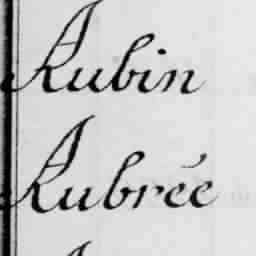 Aubin
Aubrée